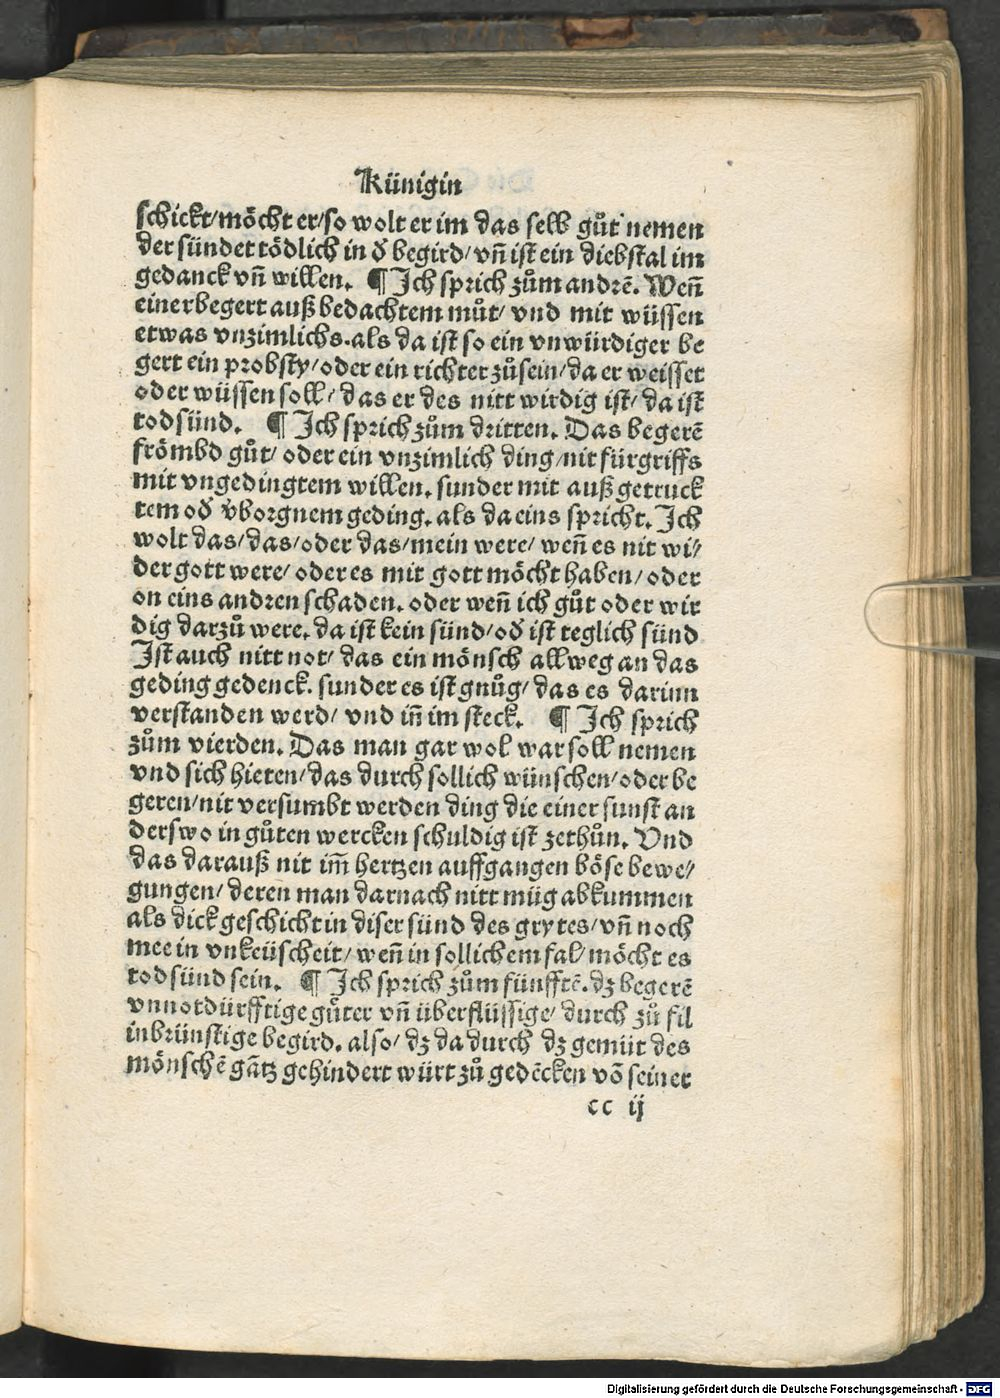 Künigin
schickt/möcht er/so wolt er im das selb gůt nemen
der sündet tödlich in ď begird/vñ ist ein diebstal im
gedanck vñ willen. ¶ Ich sprich zům andrē. Weñ
einer begert auß bedachtem můt/ vnd mit wüssen
etwas vnzimlichs.als da ist so ein vnwürdiger be
gert ein probsty/oder ein richter zůsein/da er weisset
oder wüssen soll/das er des nitt wirdig ist/da ist
todsünd. ¶ Ich sprich zům dritten. Das begerē
frömbd gůt/ oder ein vnzimlich ding/nit fürgriffs
mit vngedingtem willen. sunder mit auß getruck
tem oď v̄borgnem geding. als da eins spricht. Ich
wolt das/das/oder das/mein were/ weñ es nit wi/
der gott were/ oder es mit gott möcht haben/oder
on eins andren schaden. oder weñ ich gůt oder wir
dig darzů were. da ist kein sünd/oď ist teglich sünd
Ist auch nitt not/ das ein mönsch allweg an das
geding gedenck. sunder es ist gnůg/ das es darinn
verstanden werd/ vnd iñ im steck. ¶ Ich sprich
zům vierden. Das man gar wol war soll nemen
vnd sich hieten/das durch sollich wünschen/oder be
geren/nit versumbt werden ding die einer sunst an
derswo in gůten wercken schuldig ist zethůn. Vnd
das darauß nit im̄ hertzen auffgangen böse bewe/
gungen/ deren man darnach nitt müg abkummen
als dick geschicht in diser sünd des grytes/vñ noch
mee in vnkeüscheit/ weñ in sollichem fal/ möcht es
todsünd sein. ¶ Ich sprich zům fünfftē.dz begerē
vnnotdürfftige gůter vñ überflüssige/ durch zů fil
inbrünstige begird. also/ dz da durch dz gemüt des
mönschē gātz gehindert würt zů gedēcken vō seiner
cc ij
Digitalisierung gefördert durch die Deutsche Forschungsgemeinschaft - DFG